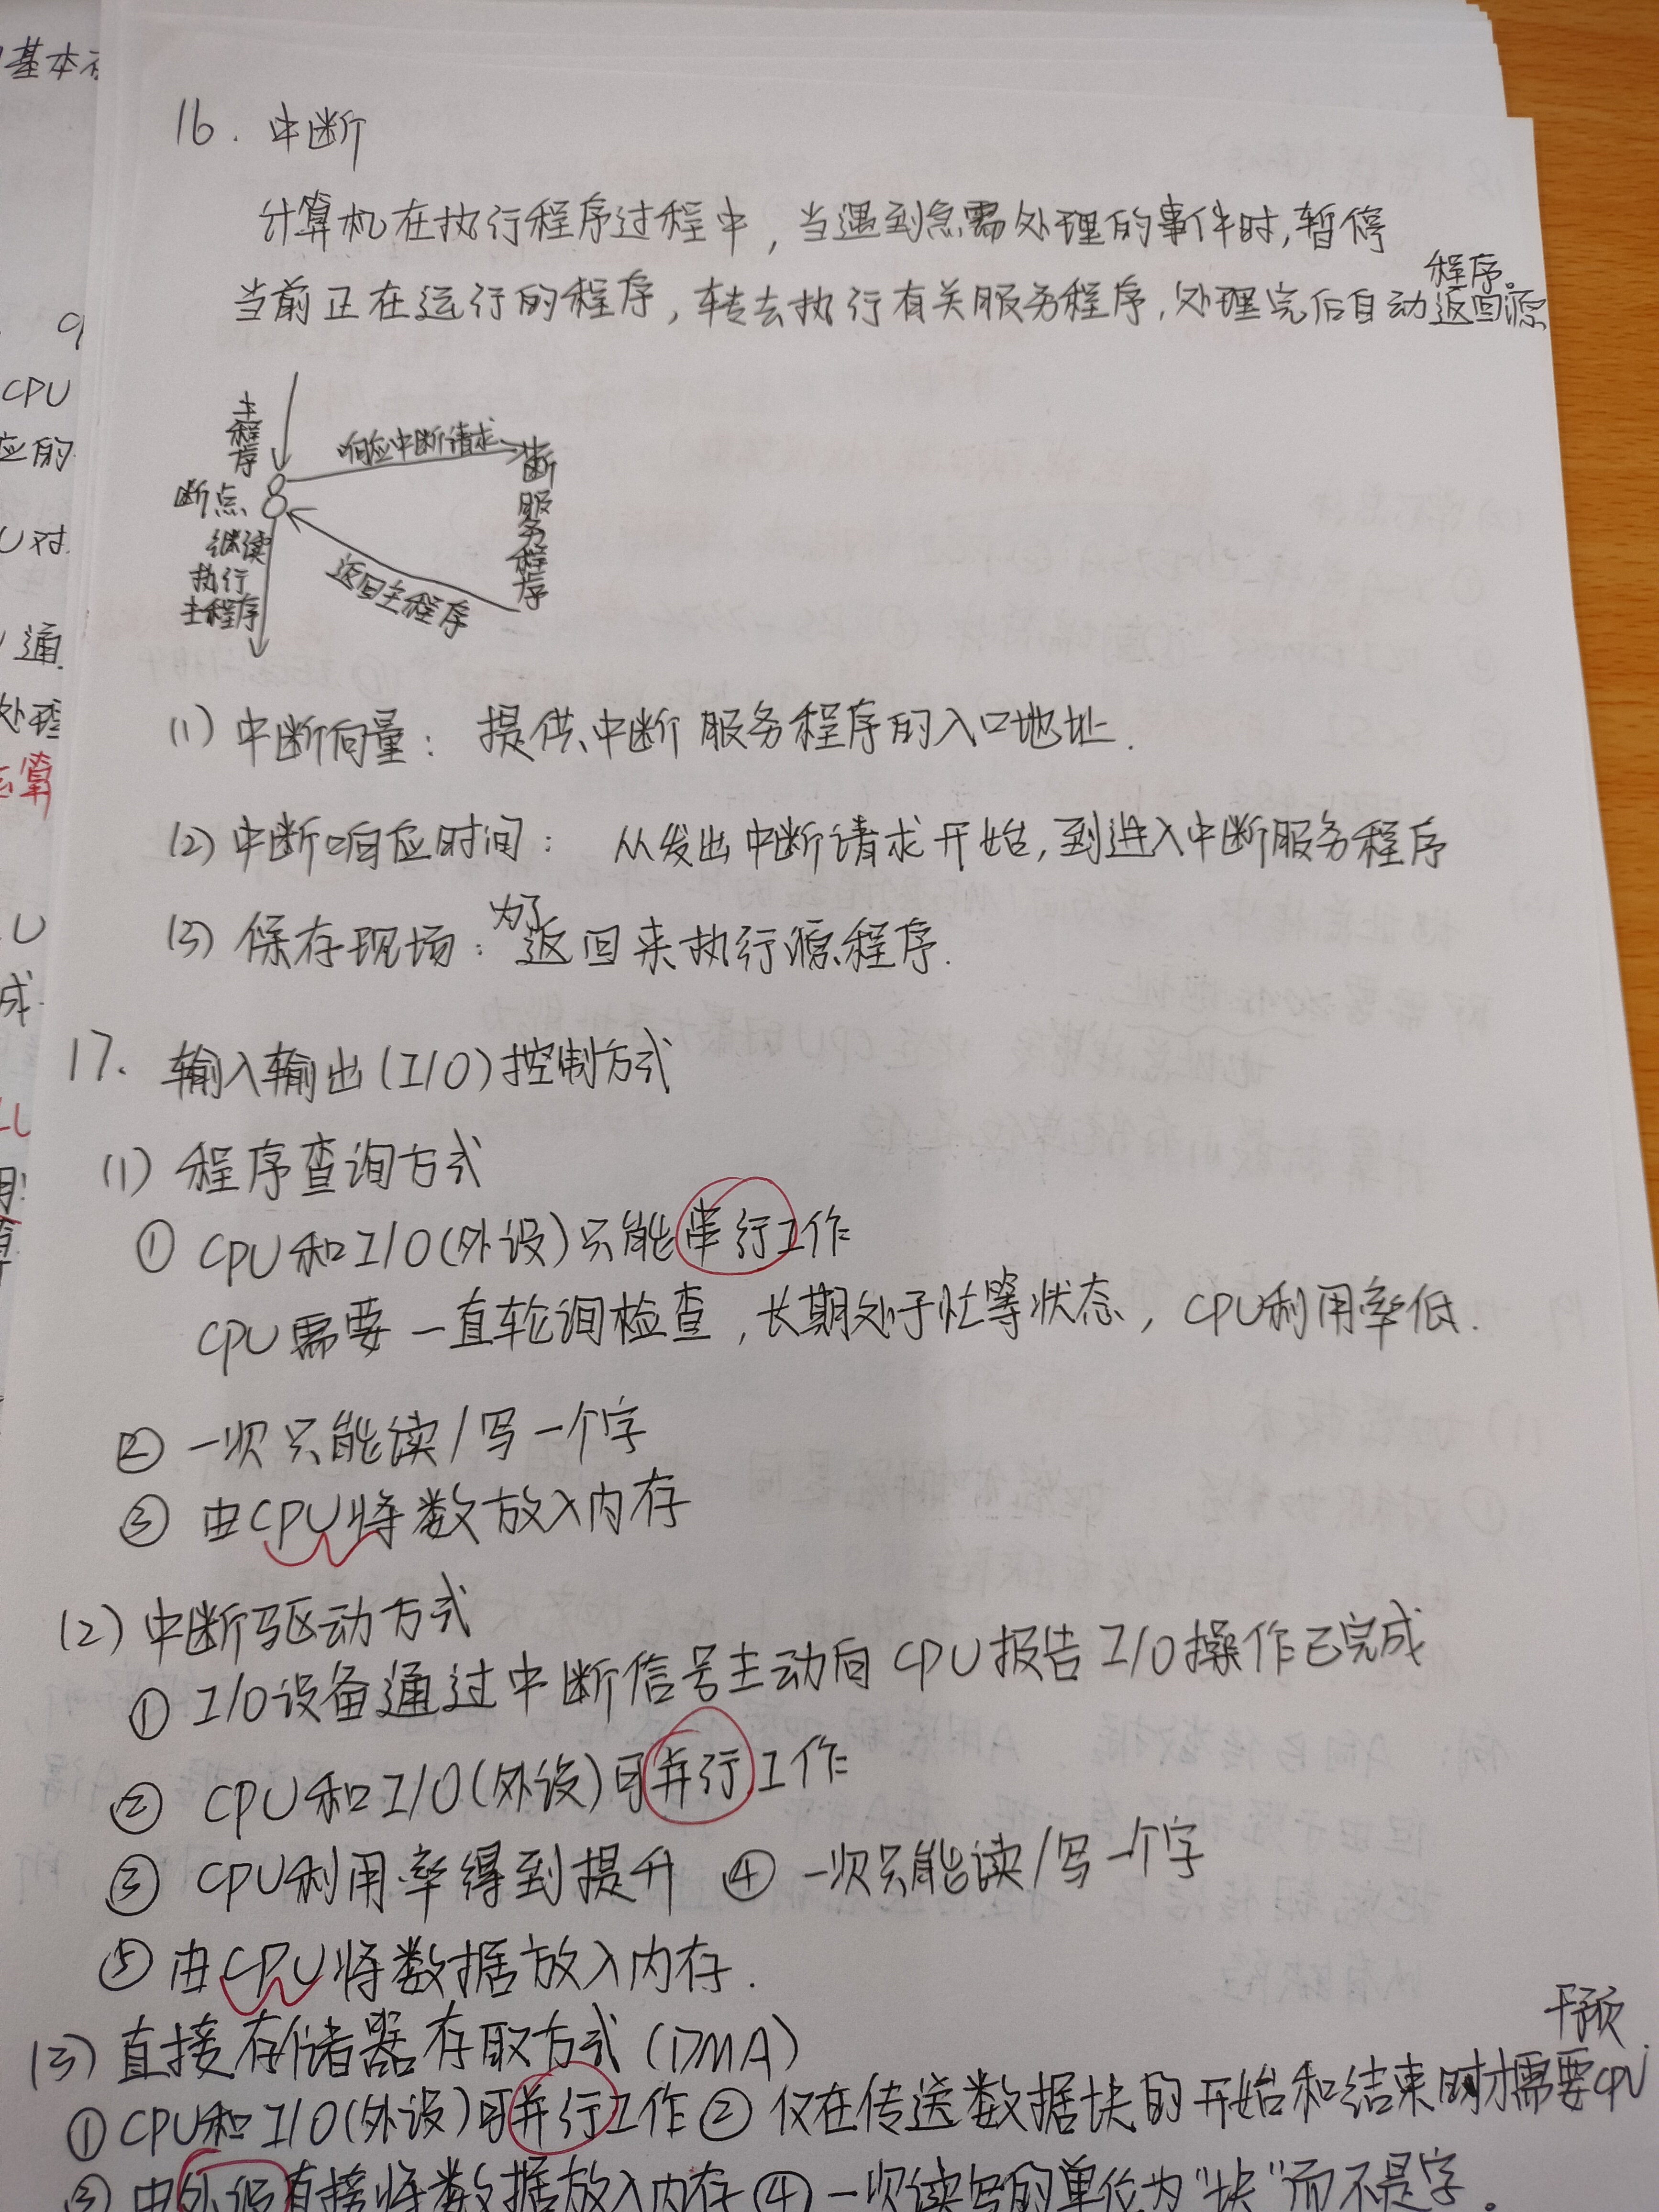 基本
9
CPU
应的
U对
通
处理
运算
U
成
16. 中断
计算机在执行程序过程中，当遇到急需处理的事件时，暂停
当前正在运行的程序，转去执行有关服务程序，处理完后自动返回源
程序。
主程序
断点
继续
执行
主程序
响应中断请求
中断服务程序
返回主程序
(1) 中断向量： 提供中断服务程序的入口地址.
(2) 中断响应时间： 从发出中断请求开始，到进入中断服务程序
(3) 保存现场：为了返回来执行源程序.
17. 输入输出(I/O)控制方式
(1) 程序查询方式
① CPU和I/O(外设)只能串行工作
CPU需要一直轮询检查，长期处于忙等状态，CPU利用率低.
② 一次只能读/写一个字
③ 由CPU将数放入内存
(2) 中断驱动方式
① I/O设备通过中断信号主动向CPU报告I/O操作已完成
② CPU和I/O(外设)可并行工作
③ CPU利用率得到提升 ④ 一次只能读/写一个字
⑤ 由CPU将数据放入内存.
(3) 直接存储器存取方式(DMA)
① CPU和I/O(外设)可并行工作 ② 仅在传送数据块的开始和结束时才需要CPU
干预.
③ 由外设直接将数据放入内存 ④ 一次读写的单位为"块"而不是字。